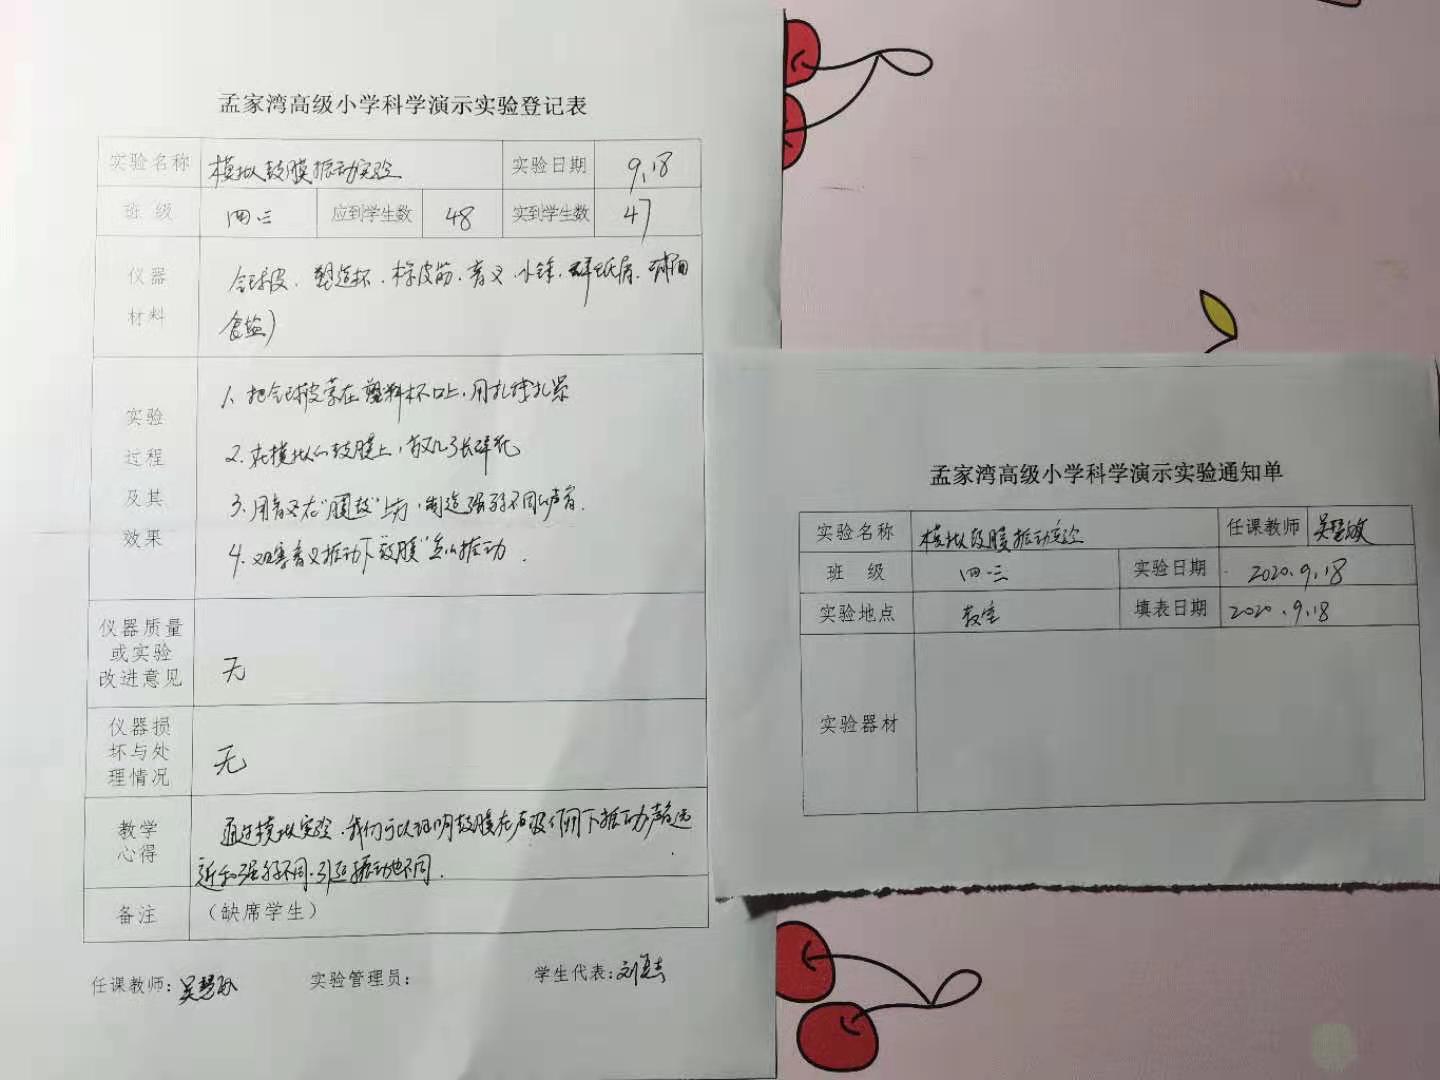 孟家湾高级小学科学演示实验登记表
实验名称 模拟鼓膜振动实验 实验日期 9.18
班 级 四.三 应到学生数 48 实到学生数 47
仪器材料 气球皮、塑造杯、橡皮筋、音叉、小锤、碎纸屑、
食盐)
实验过程及其效果
1、把气球皮蒙在塑料杯口上，用扎绳扎紧
2.在模拟的鼓膜上，散几张碎纸
3.用音叉在"膜鼓"上方，制造强弱不同的声音.
4.观察音叉振动下"鼓膜"怎么振动.
仪器质量或实验改进意见 无
仪器损坏与处理情况 无
教学心得 通过模拟实验，我们可以理明鼓膜在声波作用下振动声音远
近和强弱不同，引起振动也不同.
备注 (缺席学生)
任课教师: 实验管理员: 学生代表:
孟家湾高级小学科学演示实验通知单
实验名称 模拟鼓膜振动实验 任课教师 吴慧敏
班 级 四.三 实验日期 2020.9.18
实验地点 教室 填表日期 2020.9.18
实验器材